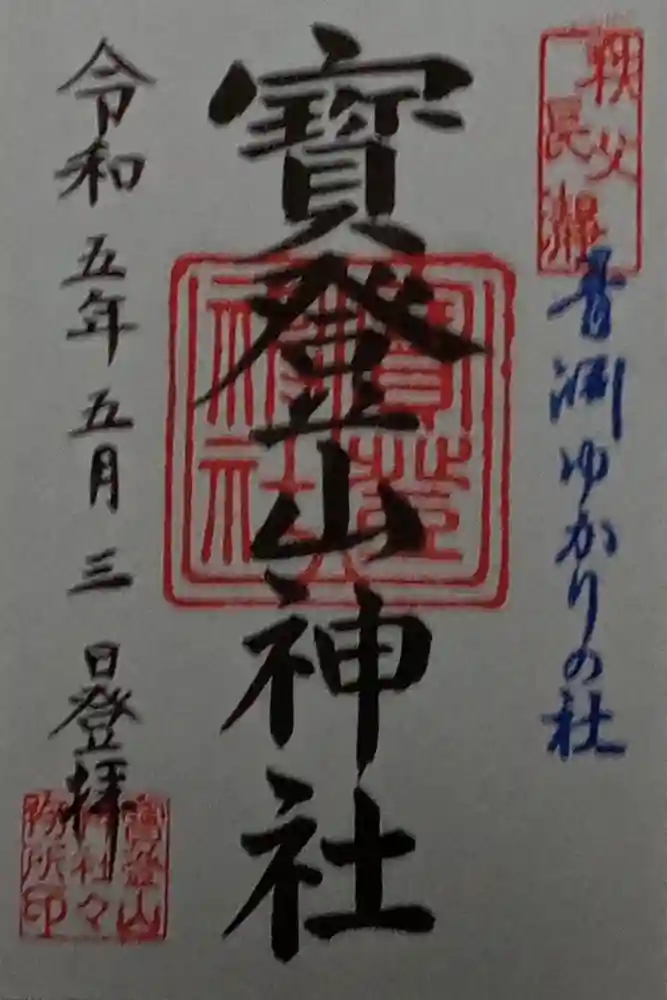 秩父
長瀞
青渊ゆかりの社
寳登山神社
寳登
山神社
令和五年五月三日登拝
宝登山
神社々
務所印